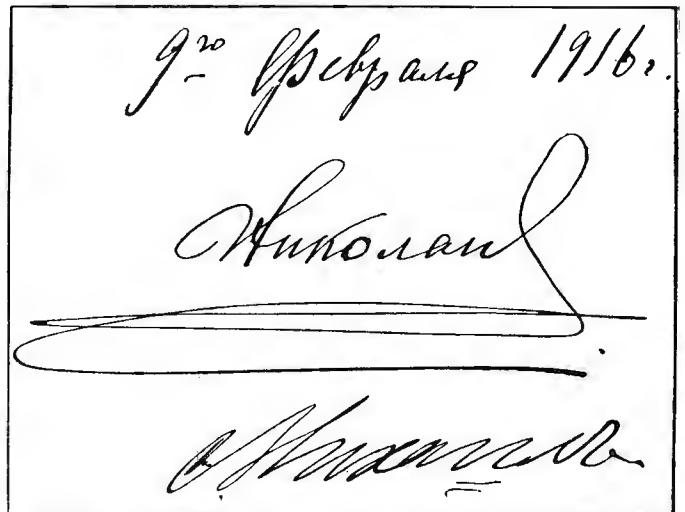 9го Февраля 1916 г.
Николай
Михаилъ